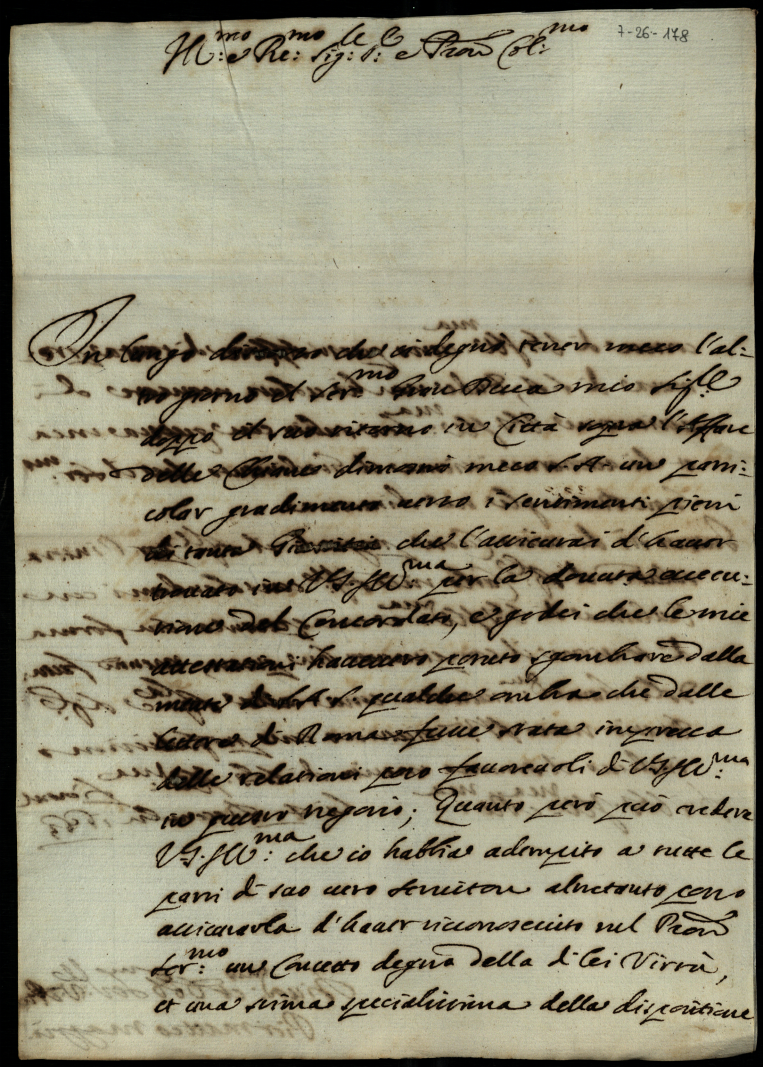 7-26-178
Ill:mo e Re:mo Sig:re e Pron Col:mo
In longo discorso che si degnò tener meco l'al:
tro giorno il Ser:mo Duca mio Sig:re
doppo il suo ritorno in Città sopra l'Affare
delle Chiane dimostrò meco S. A. un parti:
colar gradimento verso i sentimenti pieni
di tutta che l'assicurai d'haver
trovato in V.S. Ill:ma per la dovuta execu:
tione del Concordato, e godei che le mie
attestationi havessero potuto sgombrare dalla
mente di S. A. S. qualche ombra che dalle
lettere di Roma fusse stata impressa
delle relationi poco favorevoli di V.S. Ill:ma
in questo negotio; Quanto però può credere
V.S. Ill:ma che io habbia adempito a tutte le
parti di suo vero servitore altretanto posso
assicurarla d'haver riconosciuto nel Pron
Ser:mo un Concetto degno della di lei Virtù,
et una stima specialissima della dispositione